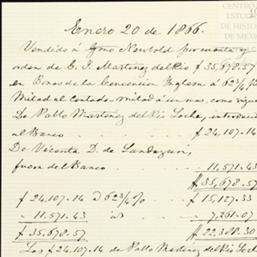 CENTRO
ESTUDI
DE HISTOR
DE MEX
Enero 20 de 1866.
Vendido á Ygno Newbold por cuenta y
orden de C. J. Martinez del Rio $ 35,678.57
en Bonos de la Convencion Inglesa á 62¾%
Mitad al contado, mitad á un mes, como sigue
De Pablo Martinez del Rio
al Banco $ 24,107-14
De Vicenta D. de Landazuri,
fuera del Banco 11,571.43
$ 35,678.57
$ 24,107-14 á 62¾% $ 15,127.33
11,571.43 7,261.07
$ 35,678.57 $ 22,388.30
Los $ 24,107-14 de Pablo Martinez del Rio